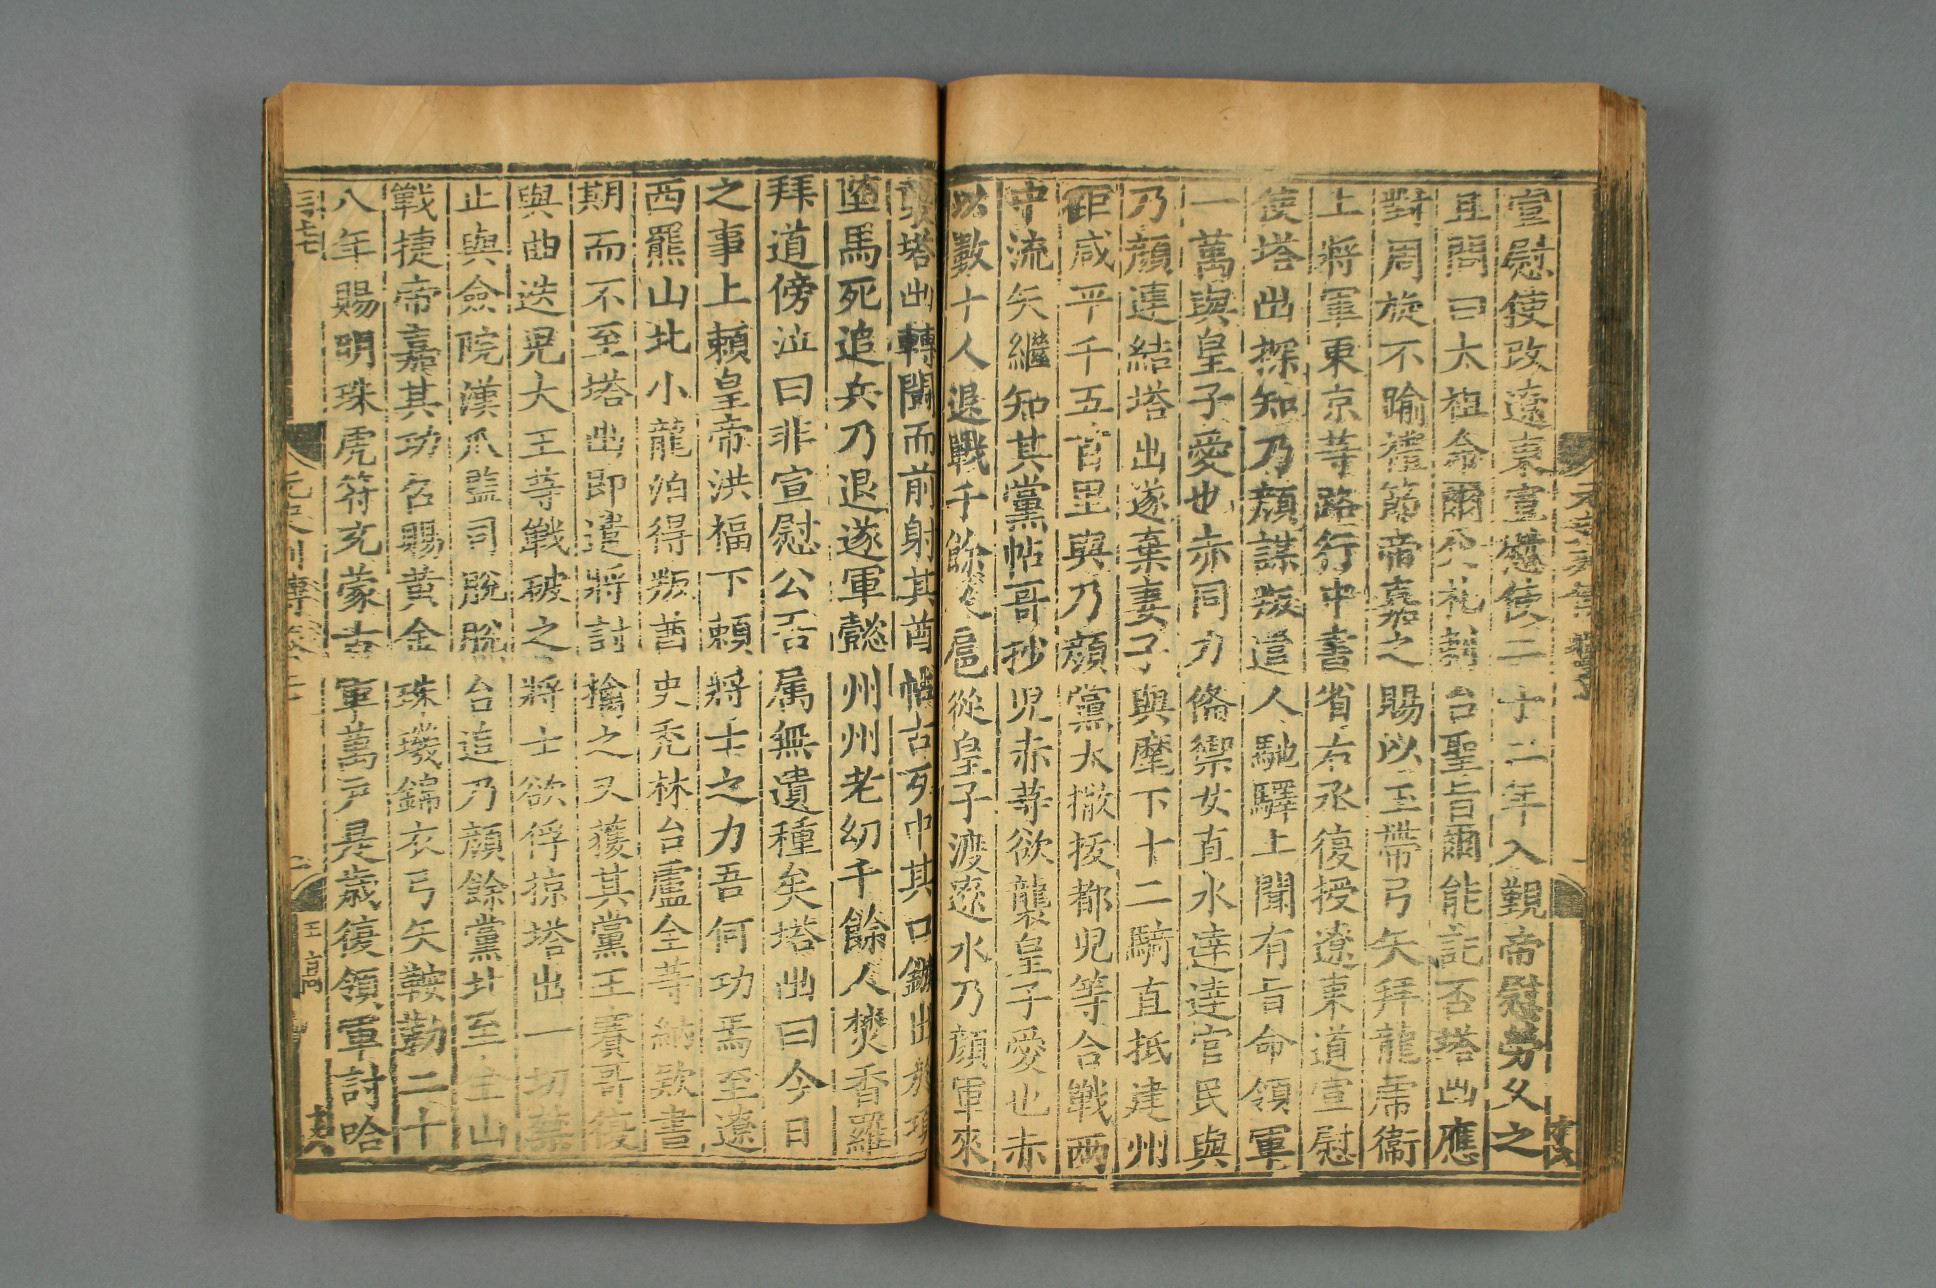 宣慰使改遼東宣慰使二十二年入覲帝慰勞久之
且問曰太祖命爾父札剌台聖旨爾能記否塔出應
對周旋不踰禮節帝嘉之賜以玉帶弓矢拜龍虎衞
上將軍東京等路行中書省右丞復授遼東道宣慰
使塔出探知乃顏謀叛遣人馳驛上聞有旨命領軍
一萬與皇子愛也赤同力備禦女直水達達官民與
乃顏連結塔出遂棄妻子與麾下十二騎直抵建州
距咸平千五百里與乃顏黨太撒拔都兒等合戰兩
中流矢繼知其黨帖哥抄兒赤等欲襲皇子愛也赤
以數十人退戰千餘人扈從皇子渡遼水乃顏軍來
襲塔出轉鬭而前射其酋帖古歹中其口鏃出於項
墮馬死追兵乃退遂軍懿州州老幼千餘人焚香羅
拜道傍泣曰非宣慰公吾属無遺種矣塔出曰今日
之事上賴皇帝洪福下賴將士之力吾何功焉至遼
西羆山北小龍泊得叛酋史禿林台盧全等納欵書
期而不至塔出即遣將討擒之又獲其黨王賽哥復
與曲迭兒大王等戰破之將士欲俘掠塔出一切禁
止與僉院漢爪監司脫脫台追乃顏餘黨北至金山
戰捷帝嘉其功召賜黃金珠璣錦衣弓矢鞍勒二十
八年賜明珠虎符充蒙古軍萬戶是歲復領軍討哈
元史列傳卷二十
王高